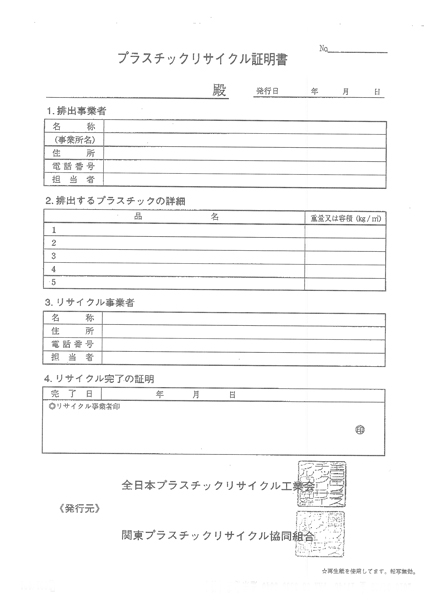 No.
プラスチックリサイクル証明書
殿 発行日 年 月 日
1.排出事業者
名 称
(事業所名)
住 所
電話番号
担当者
2.排出するプラスチックの詳細
品 名 重量又は容積(kg/㎥)
1
2
3
4
5
3.リサイクル事業者
名 称
住 所
電話番号
担当者
4.リサイクル完了の証明
完了日 年 月 日
◎リサイクル事業者印
㊞
全日本プラスチックリサイクル工業会
《発行元》
関東プラスチックリサイクル協同組合
☆再生紙を使用してます。複写無効。